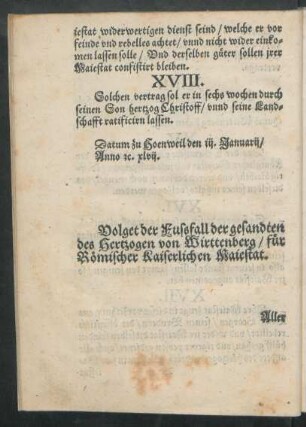 iestat widerwertigen dienst seind / welche er vor
feinde vnd rebelles achtet / vnnd nicht wider einko-
men lassen solle / Vnd derselben güter sollen jrer
Maiestat confiscirt bleiben.
XVIII.
Solchen vertrag sol er in sechs wochen durch
seinen Son hertzog Christoff / vnnd seine Land-
schafft ratificirn lassen.
Datum zu Hoenweil den iij. Januarij /
Anno ꝛc. xlvij.
Volget der Fussfall der gesandten
des Hertzogen von Wirttenberg / für
Römischer Kaiserlichen Maiestat.
Aller